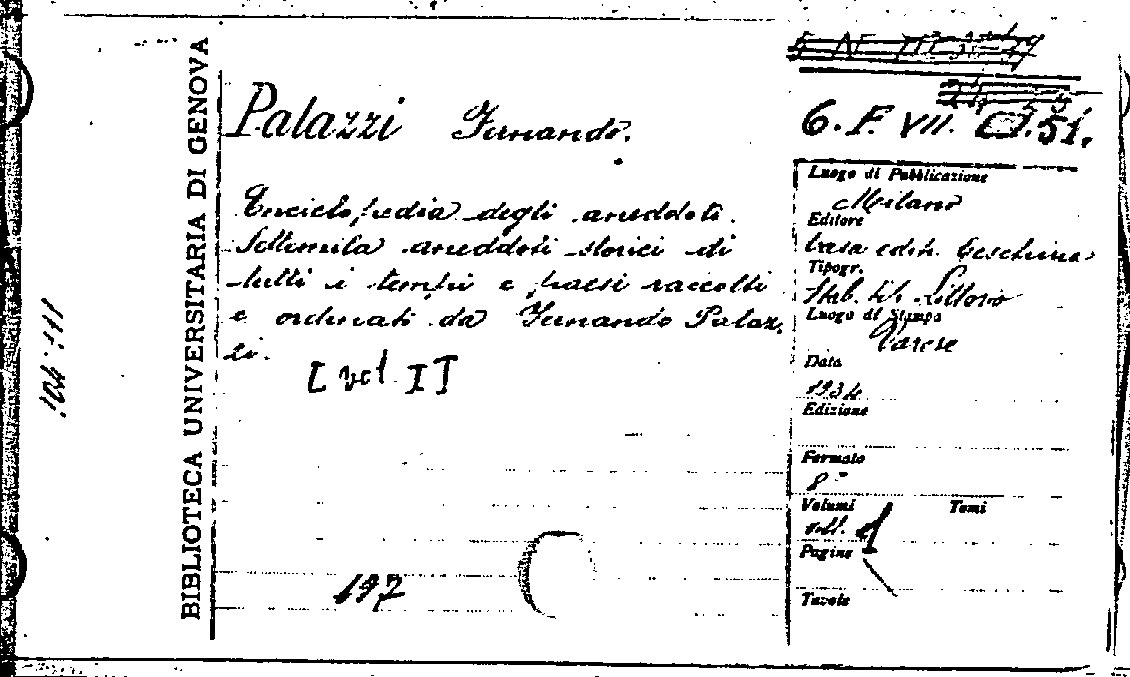 BIBLIOTECA UNIVERSITARIA DI GENOVA
Palazzi Fernando.
6. F. VII. 51.
Enciclopedia degli aneddoti.
Settemila aneddoti storici di
tutti i tempi e paesi raccolti
e ordinati da Fernando Palaz-
zi.
[vol. I]
197
Luogo di Pubblicazione
Milano
Editore
Casa edit. Ceschina
Tipogr.
Stab. tip. Littorio
Luogo di Stampa
Varese
Data
1934
Edizione
Formato
8°
Volumi Tomi
voll. 1
Pagine
Tavole